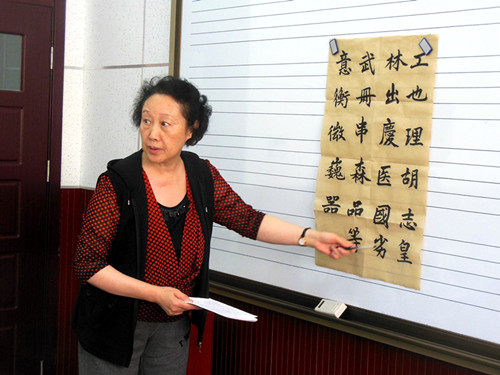 工也理胡志皇
林出慶医國劣
武冊串森品等
意衡微巍器